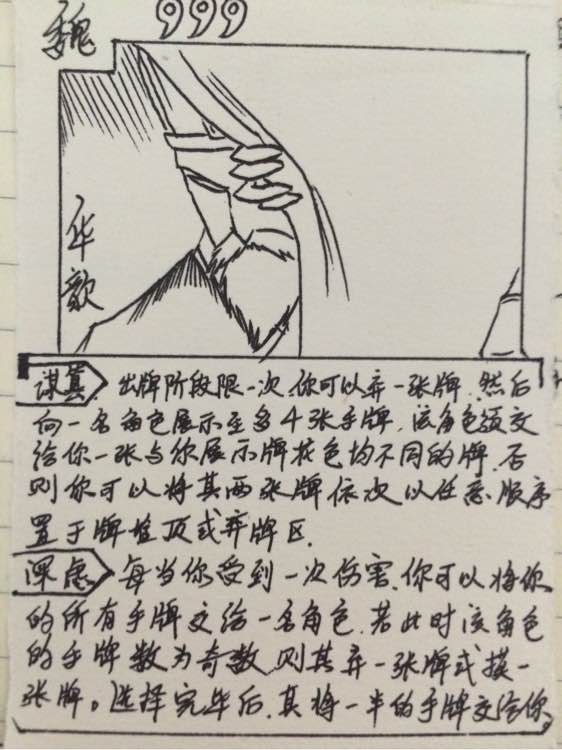 魏
华歆
谋算 出牌阶段限一次,你可以弃一张牌,然后
向一名角色展示至多4张手牌,该角色须交
给你一张与你展示牌花色均不同的牌,否
则你可以将其两张牌依次以任意顺序
置于牌堆顶或弃牌区.
深虑 每当你受到一次伤害,你可以将你
的所有手牌交给一名角色.若此时该角色
的手牌数为奇数,则其弃一张牌或摸一
张牌。选择完毕后,其将一半的手牌交给你